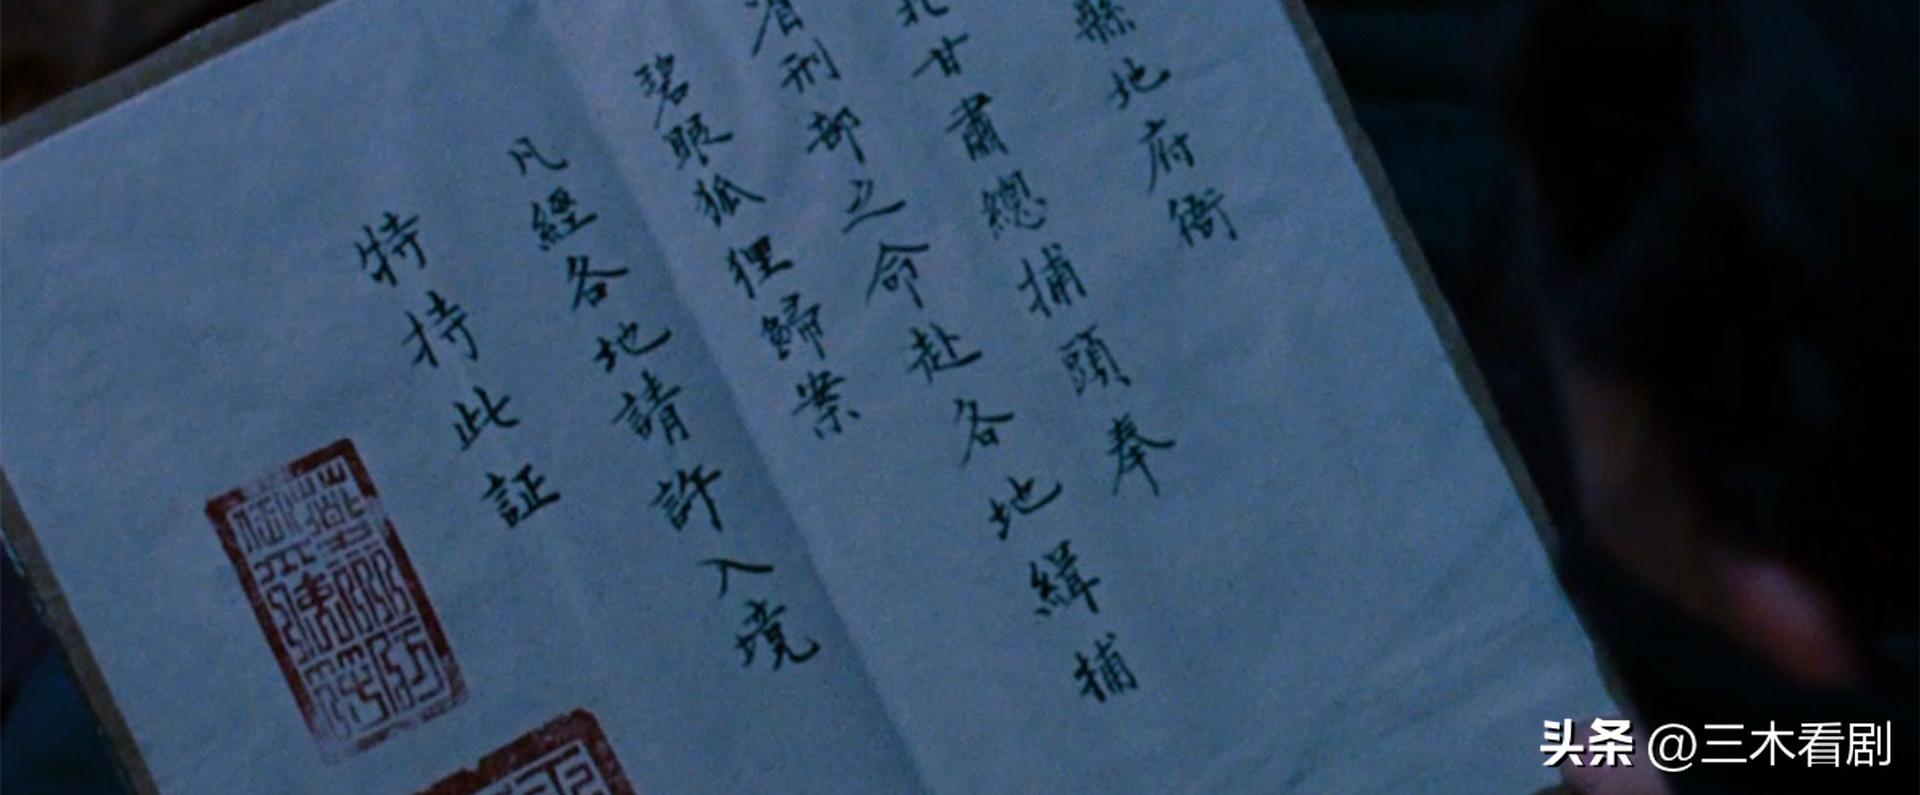 縣地府衙
北甘肅總捕頭奉
省刑部之命赴各地緝捕
碧眼狐狸歸案
凡經各地請許入境
特持此証
头条 @三木看剧